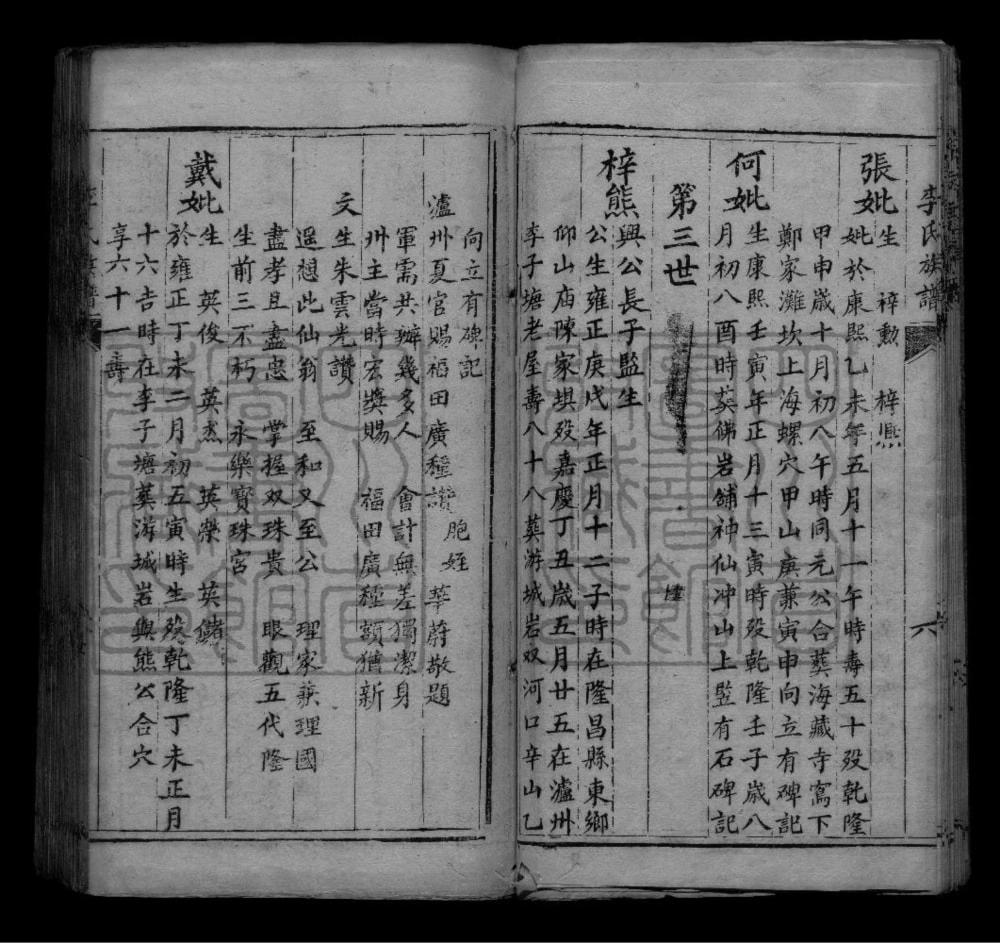 李氏族譜
六
張妣生 梓勲 梓熈
妣於康熙乙未年五月十一午時壽五十歿乾隆
甲申歲十月初八午時同元公合葬海藏寺窩下
鄭家灘坎上海螺穴甲山庚兼寅申向立有碑記
何妣生康熙壬寅年正月十三寅時歿乾隆壬子歲八
月初八酉時葬佛岩舖神仙冲山上竪有石碑記
第三世
梓熊興公長子監生
公生雍正庚戌年正月十二子時在隆昌縣東鄉
仰山庙陳家埧歿嘉慶丁丑歲五月廿五在瀘州
李子塘老屋壽八十八葬游城岩双河口辛山乙
向立有碑記
瀘州夏官賜福田廣種讃 胞姪 華蔚敬題
軍需共辦幾多人 會計無差獨潔身
州主當時宏奬賜 福田廣種額猶新
又
生朱雲光讚
遥想此仙翁 至和又至公 理家兼理國
盡孝且盡忠 掌握双珠貴 眼觀五代隆
生前三不朽 永樂寶珠宮
戴妣生 英俊 英杰 英榮 英儲
於雍正丁未二月初五寅時生歿乾隆丁未正月
十六吉時在李子塘葬游城岩與熊公合穴
享六十一壽